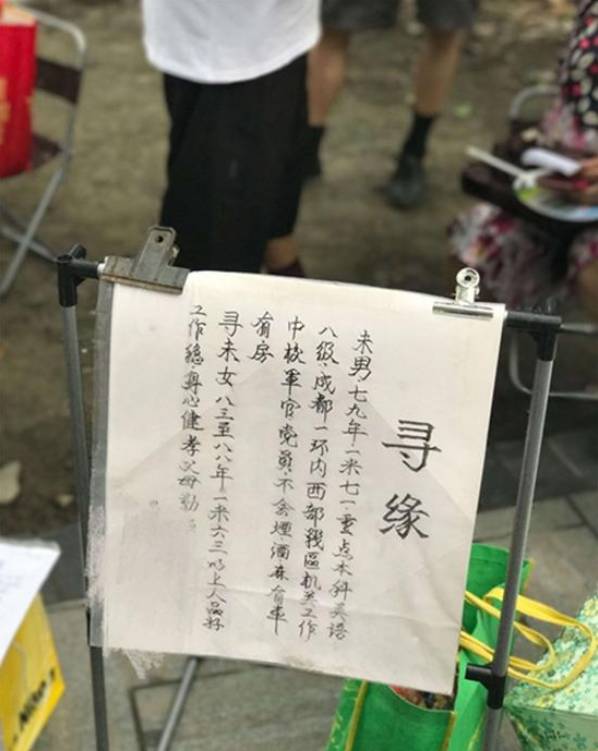 寻缘
未男.七九年.一米七一.重点本科英语
八级.成都一环内西部戰區机关工作
中校軍官党員.不会煙酒麻有車
有房
寻未女八三至八八年一米六三以上人品好
工作穩.身心健孝父母勤